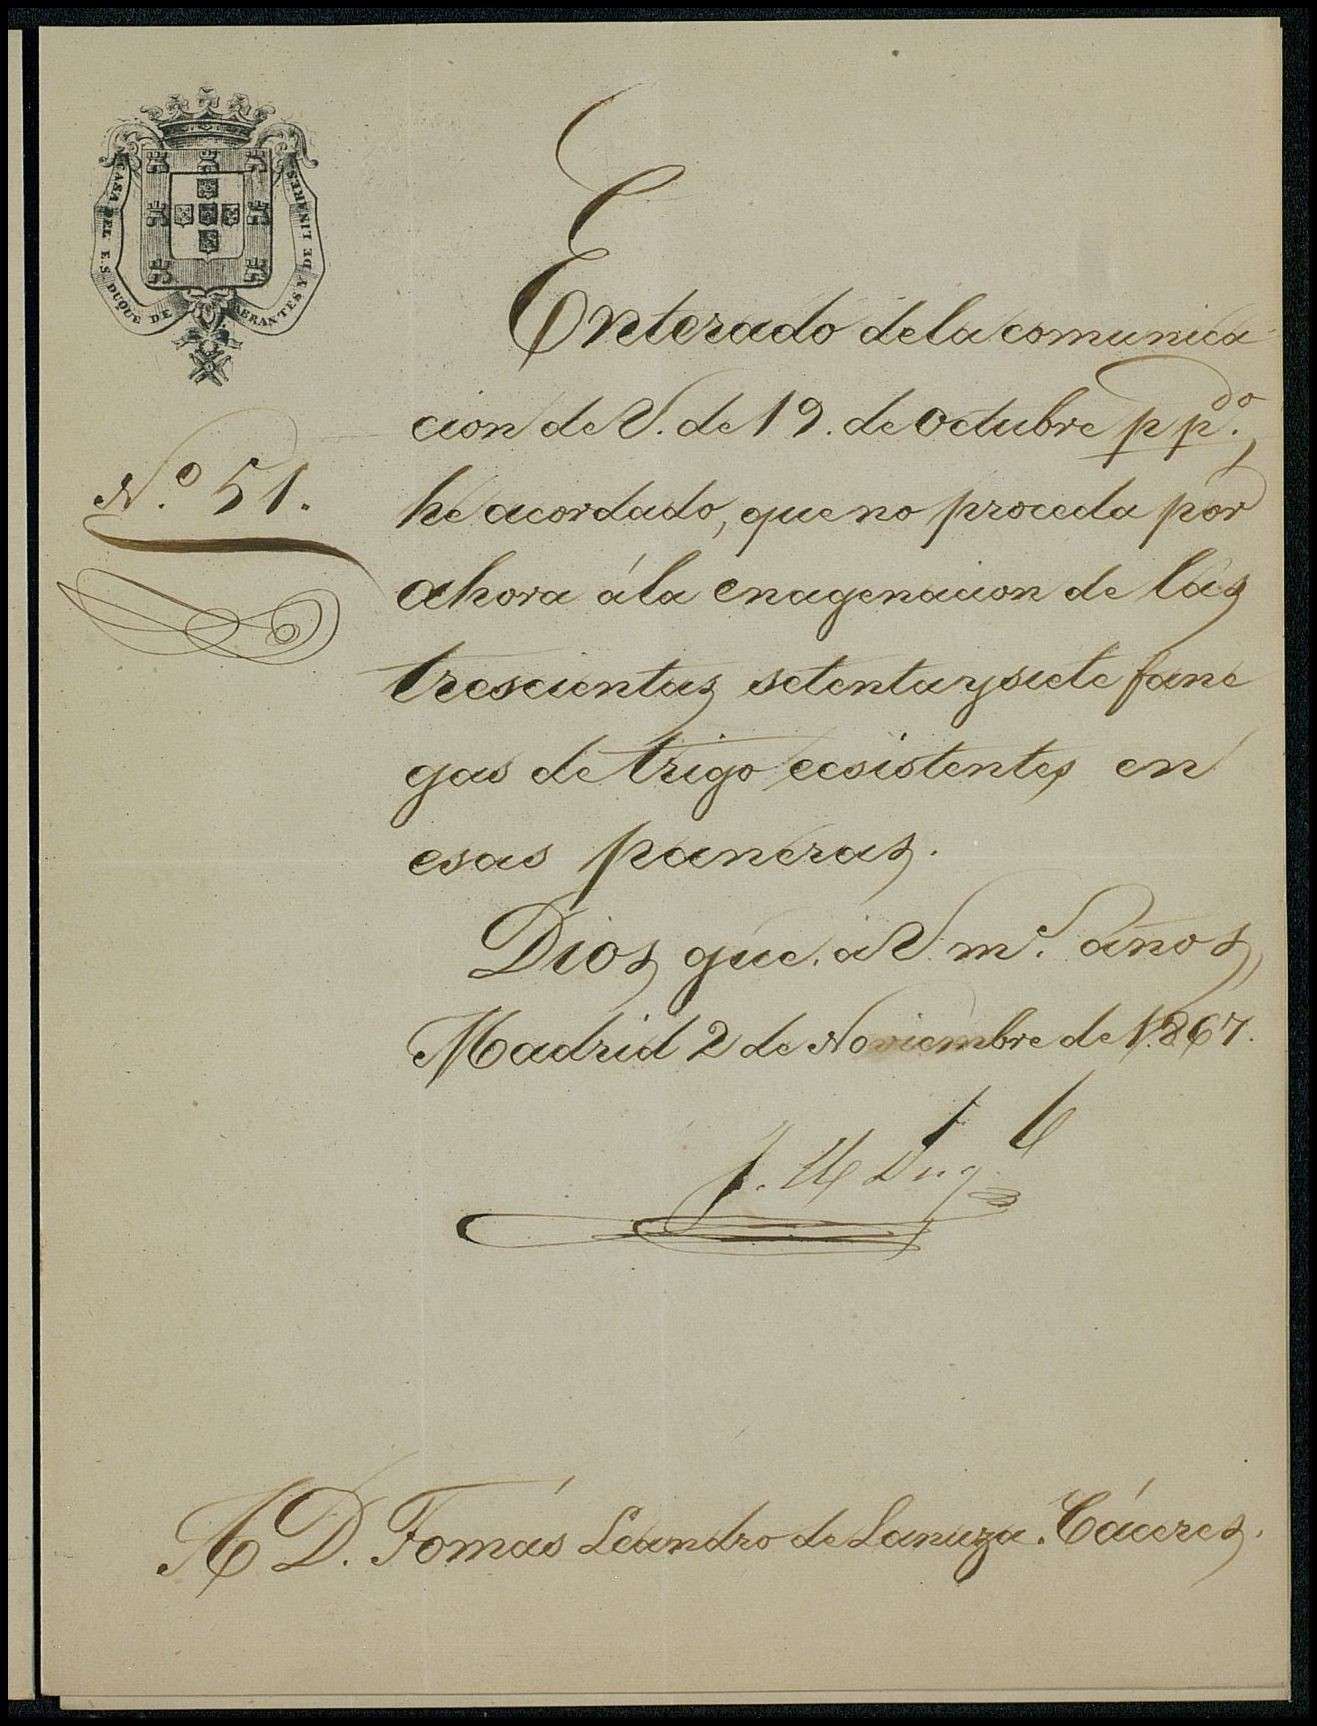 CASA DEL E.S. DUQUE DE ABRANTES Y DE LINARES
N.º 51.
Enterado de la comunica
cion de V. de 19. de Octubre pp.do,
he acordado, que no proceda por
ahora á la enagenacion de las
trescientas setenta y siete fane
gas de trigo ecsistentes en
esas paneras.
Dios gue. a V. m.s años,
Madrid 2 de Noviembre de 1.867.
A D. Tomás Leandro de Lanuza. Cáceres.